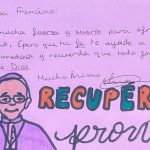 a Francisco:
mucha fuerza y suerte para afr
ad. Espero que tu fe te ayude a
medad y recuerda que todo
Dios.
Mucho Ánimo
RECUPÉR
pron